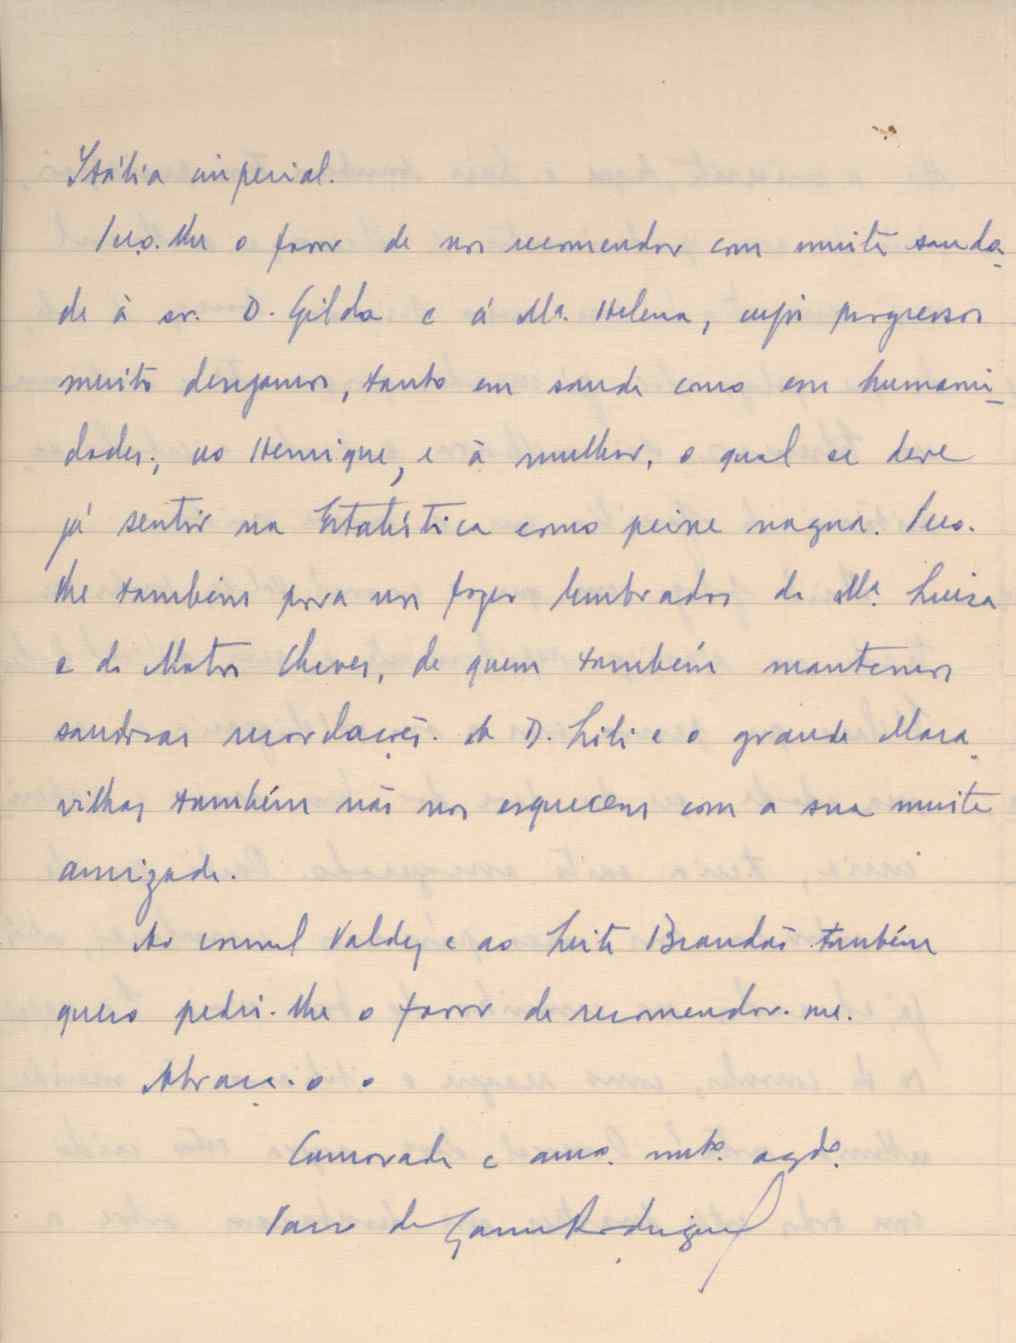 Itália imperial.
Peço-lhe o favor de nos recomendar com muita sauda-
de à sr. D. Gilda e á Mª. Helena, cujos progressos
muito desejamos, tanto em saude como em humani-
dades; ao Henrique, e à mulher, o qual se deve
já sentir na Estatística como peixe nagua. Peço-
lhe também para nos fazer lembrados de Mª. Luiza
e do Matos Chaves, de quem também mantemos
saudosas recordações. A D. Lili e o grande Mara-
vilhas também não nos esquecem com a sua muita
amizade.
Ao consul Valdez e ao Leite Brandão também
quero pedir-lhe o favor de recomendar-me.
Abraça-o o
Camarada e amº. mtº. agdº.
Vasco da Gama Rodrigues